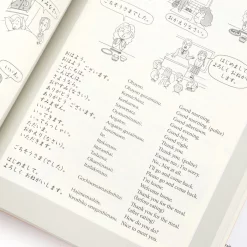 ごちそうさまでした。
いいえ。
はじめまして。
おはよう。 Ohayoo. Good morning.
おはようございます。 Ohayoo gozaimasu. Good morning. (polite)
こんにちは。 Konnichiwa. Good afternoon.
こんばんは。 Konbanwa. Good evening.
Good night.
ありがとう。 Arigatoo. Thank you.
ありがとうございます。 Arigatoo gozaimasu. Thank you. (polite)
すみません。 Sumimasen. Excuse me.
いいえ。 Iie. No.; Not at all.
いってきます。 Itte kimasu. I'll go and come back.
いってらっしゃい。 Itterasshai. Please go and come back.
ただいま。 Tadaima. I'm home.
おかえりなさい。 Okaerinasai. Welcome home.
いただきます。 Itadakimasu. Thank you for the meal.
(before eating)
ごちそうさまでした。 Gochisoosama deshita. Thank you for the meal.
(after eating)
はじめまして。 Hajimemashite. How do you do?
よろしくおねがいします。 Yoroshiku onegaishimasu. Nice to meet you.